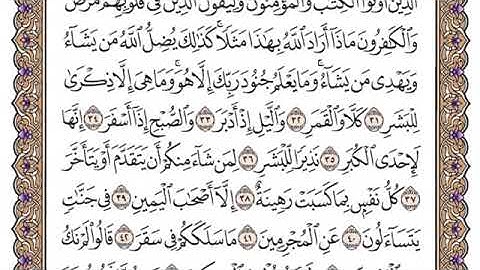 الَّذِينَ أُوتُوا الْكِتَٰبَ وَالْمُؤْمِنُونَ وَلِيَقُولَ الَّذِينَ فِي قُلُوبِهِم مَّرَضٌ
وَالْكَٰفِرُونَ مَاذَا أَرَادَ اللَّهُ بِهَٰذَا مَثَلًا ۚ كَذَٰلِكَ يُضِلُّ اللَّهُ مَن يَشَاءُ
وَيَهْدِي مَن يَشَاءُ ۚ وَمَا يَعْلَمُ جُنُودَ رَبِّكَ إِلَّا هُوَ ۚ وَمَا هِيَ إِلَّا ذِكْرَىٰ
لِلْبَشَرِ ٣١ كَلَّا وَالْقَمَرِ ٣٢ وَاللَّيْلِ إِذْ أَدْبَرَ ٣٣ وَالصُّبْحِ إِذَا أَسْفَرَ ٣٤ إِنَّهَا
لَإِحْدَى الْكُبَرِ ٣٥ نَذِيرًا لِّلْبَشَرِ ٣٦ لِمَن شَاءَ مِنكُمْ أَن يَتَقَدَّمَ أَوْ يَتَأَخَّرَ
٣٧ كُلُّ نَفْسٍ بِمَا كَسَبَتْ رَهِينَةٌ ٣٨ إِلَّا أَصْحَٰبَ الْيَمِينِ ٣٩ فِي جَنَّٰتٍ
يَتَسَاءَلُونَ ٤٠ عَنِ الْمُجْرِمِينَ ٤١ مَا سَلَكَكُمْ فِي سَقَرَ ٤٢ قَالُوا لَمْ نَكُ